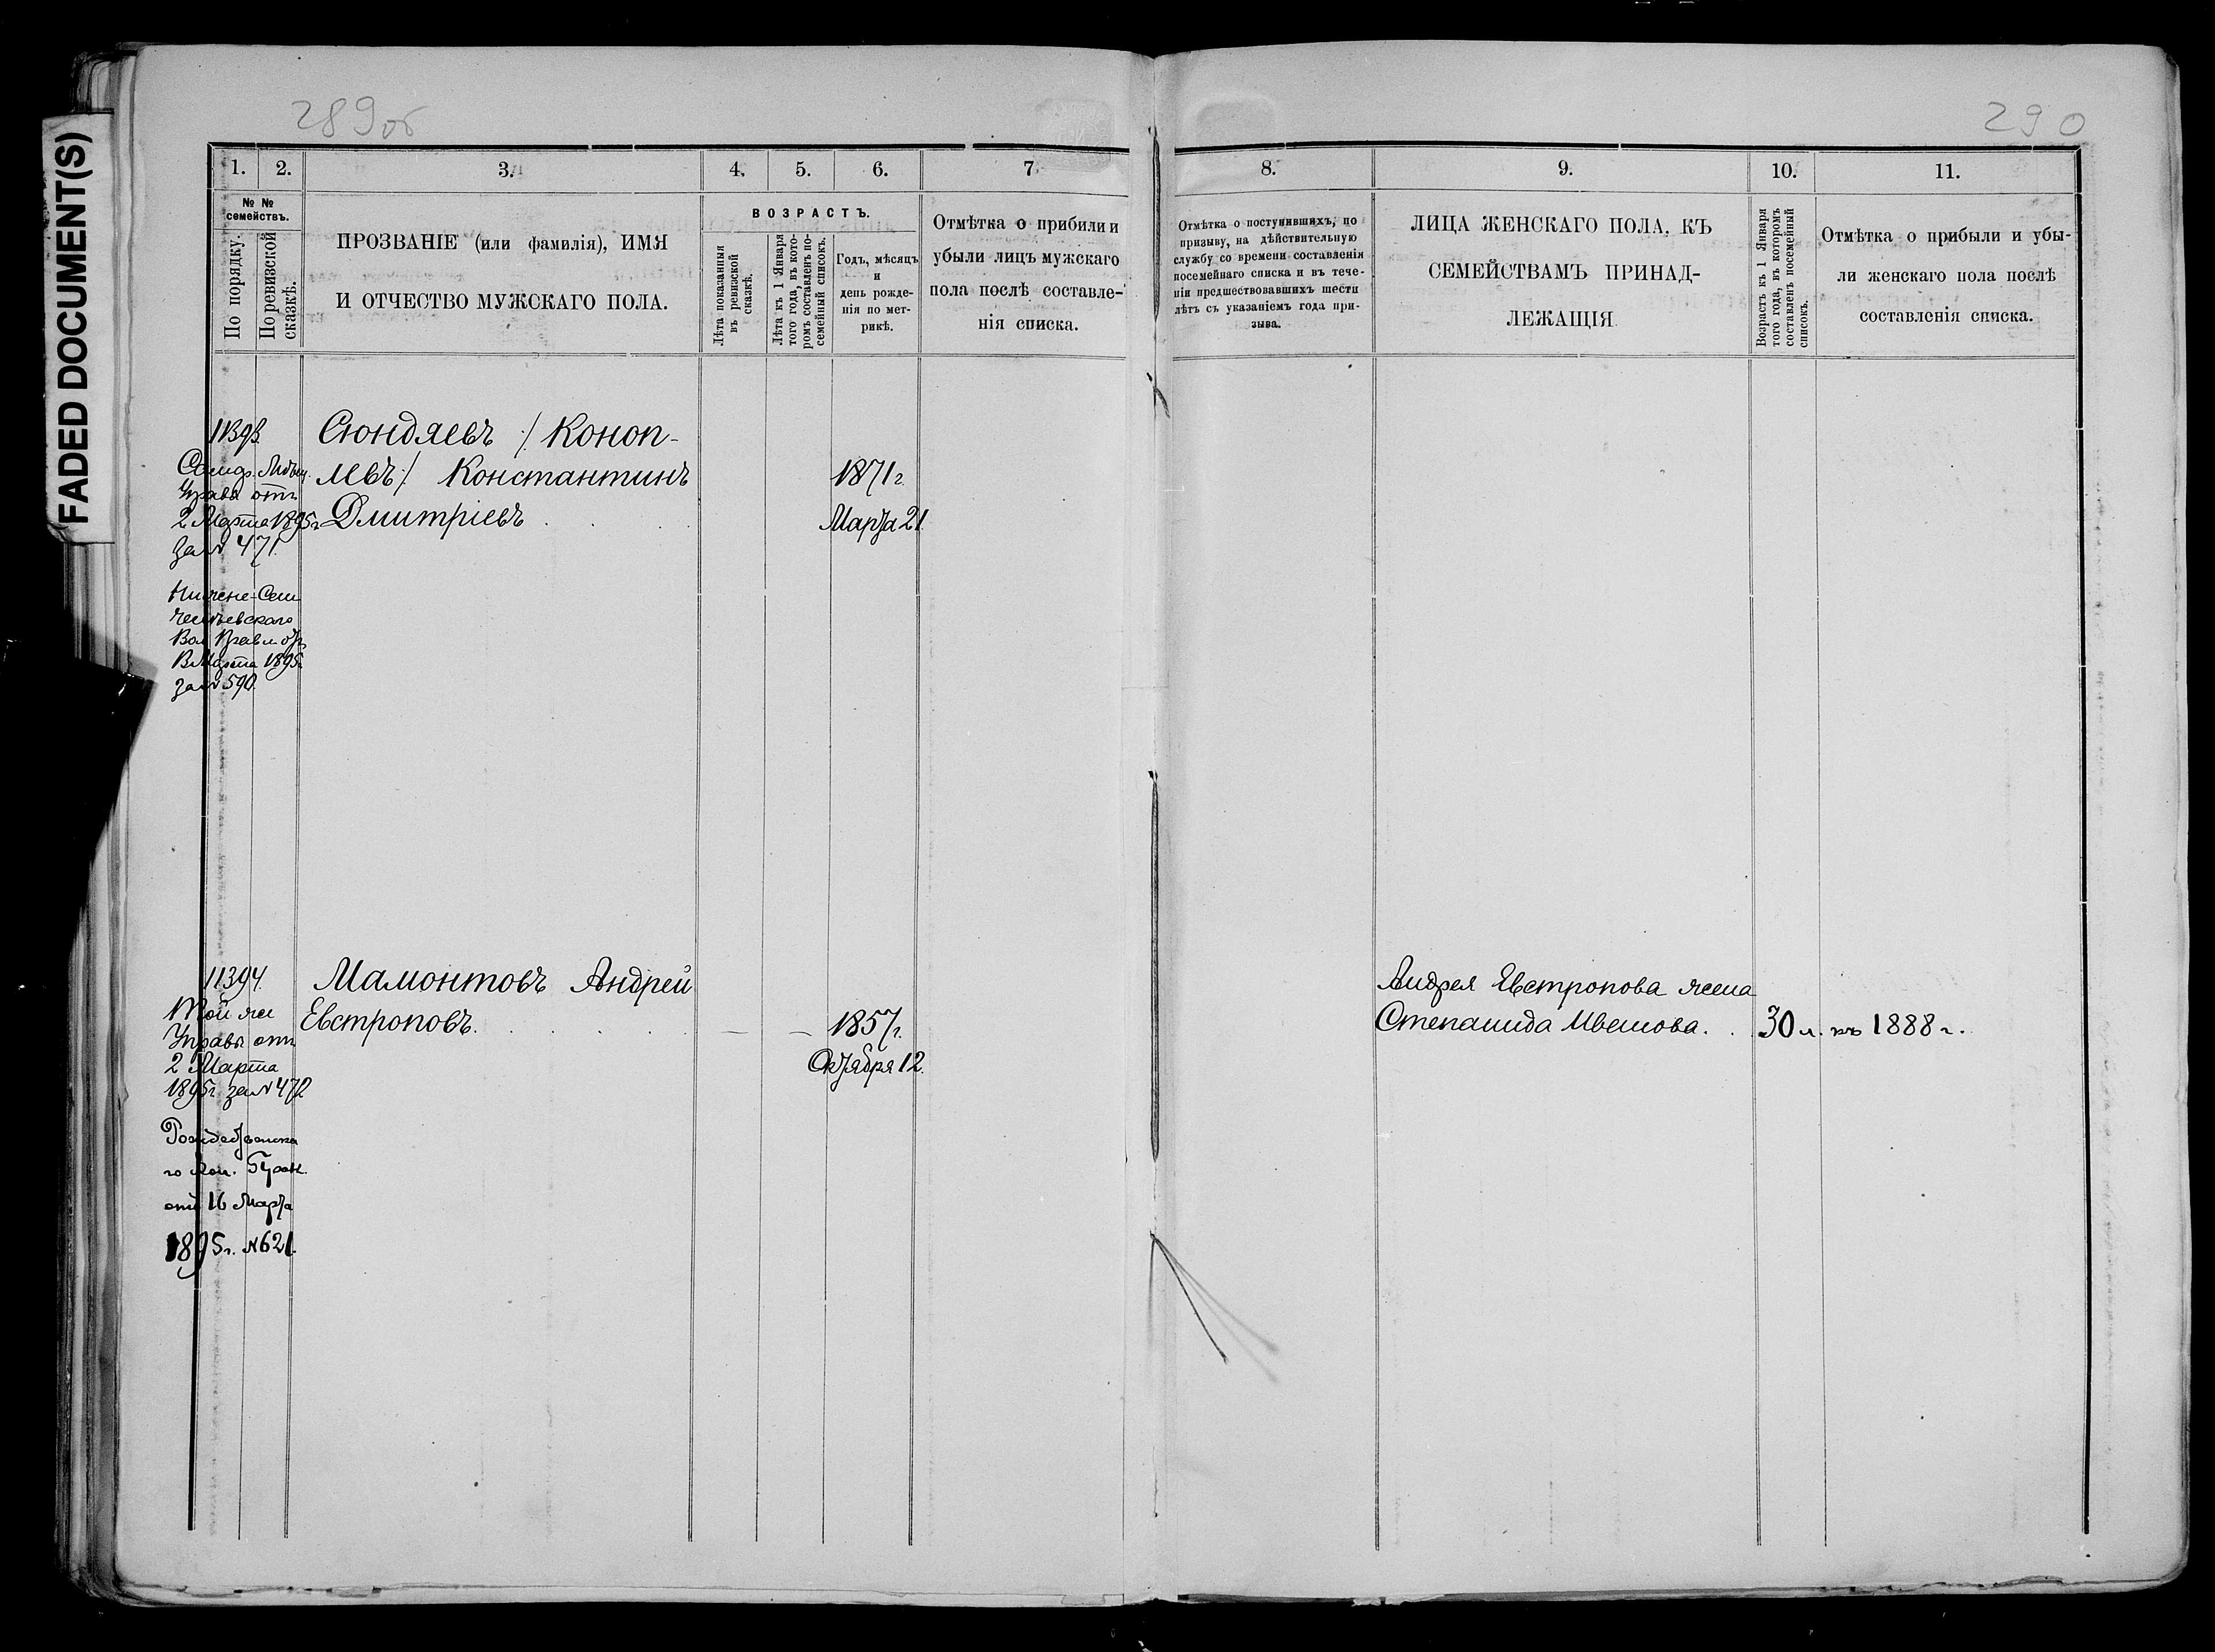 FADED DOCUMENT(S)
289 об
290
1.
2.
3.
4.
5.
6.
7.
8.
9.
10.
11.
№ №
семействъ.
По порядку.
По ревизской
сказкѣ.
ПРОЗВАНІЕ (или фамилія), ИМЯ
И ОТЧЕСТВО МУЖСКАГО ПОЛА.
ВОЗРАСТЪ.
Лѣта показанныя
въ ревизской
сказкѣ.
Лѣта къ 1 Января
того года, въ кото-
ромъ составленъ по-
семейный списокъ.
Годъ, мѣсяцъ
и
день рожде-
нія по мет-
рикѣ.
Отмѣтка о прибили и
убыли лицъ мужскаго
пола послѣ составле-
нія списка.
Отмѣтка о поступившихъ, по
призыву, на дѣйствительную
службу со времени составленія
посемейнаго списка и въ тече-
ніи предшествовавшихъ шести
лѣтъ съ указаніемъ года при-
зыва.
ЛИЦА ЖЕНСКАГО ПОЛА, КЪ
СЕМЕЙСТВАМЪ ПРИНАД-
ЛЕЖАЩІЯ
Возрастъ къ 1 Января
того года, въ которомъ
составленъ посемейный
списокъ.
Отмѣтка о прибыли и убы-
ли женскаго пола послѣ
составленія списка.
11393.
Сюндяевъ /: Коноп-
левъ :/ Константинъ
1871 г.
Дмитріевъ
Марта 21
Управы отъ
2 Марта 1895 г.
за № 471.
Вол. Правл. отъ
Марта 1895 г.
за № 590.
11394.
Мамонтовъ Андрей
Евстроповъ.
1857 г.
Октября 12.
Той же
Управы отъ
2 Марта
1895 г. за № 472
Рождественска
го
отъ 16 Марта
1895 г. № 621.
Андрея Евстропова жена
Степанида Иванова. 30 л. къ 1888 г.